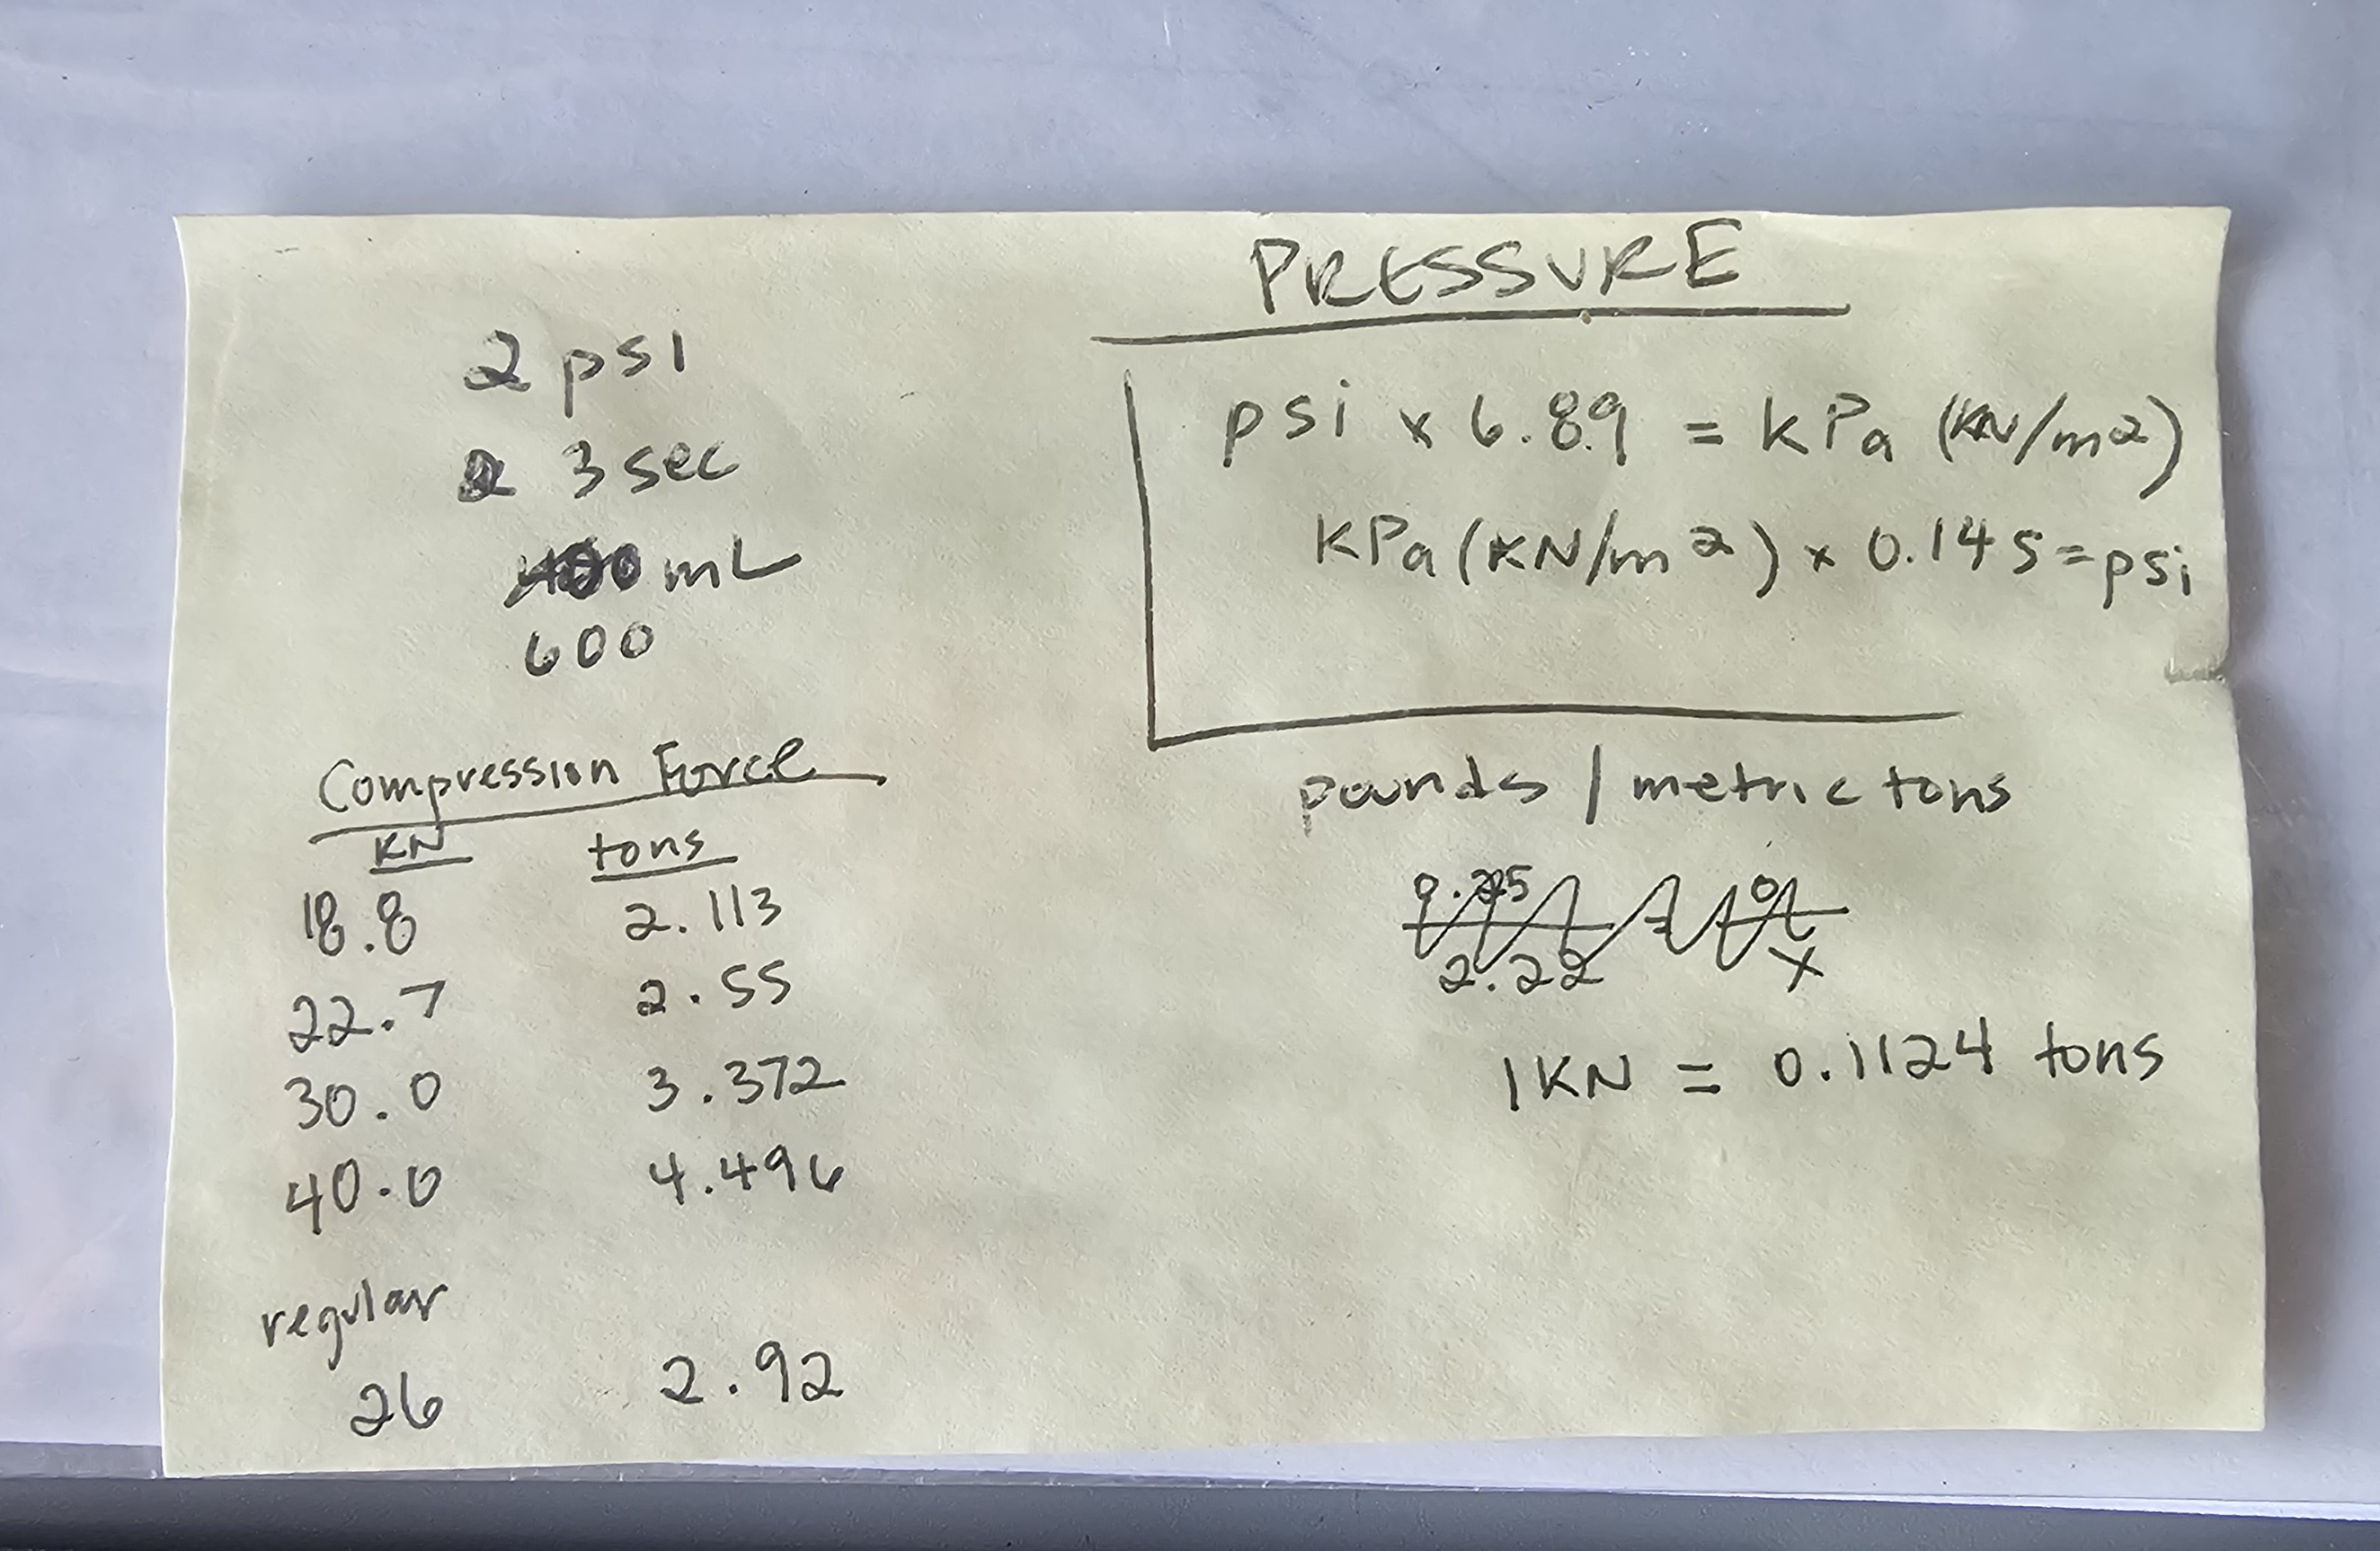 PRESSURE
2 psi
3 sec
mL
600
psi x 6.89 = kPa (KN/m2)
kPa (KN/m2) x 0.145 = psi
Compression Force
KN tons
18.8 2.113
22.7 2.55
30.0 3.372
40.0 4.496
regular
26 2.92
pounds / metric tons
2.22 X
1KN = 0.1124 tons